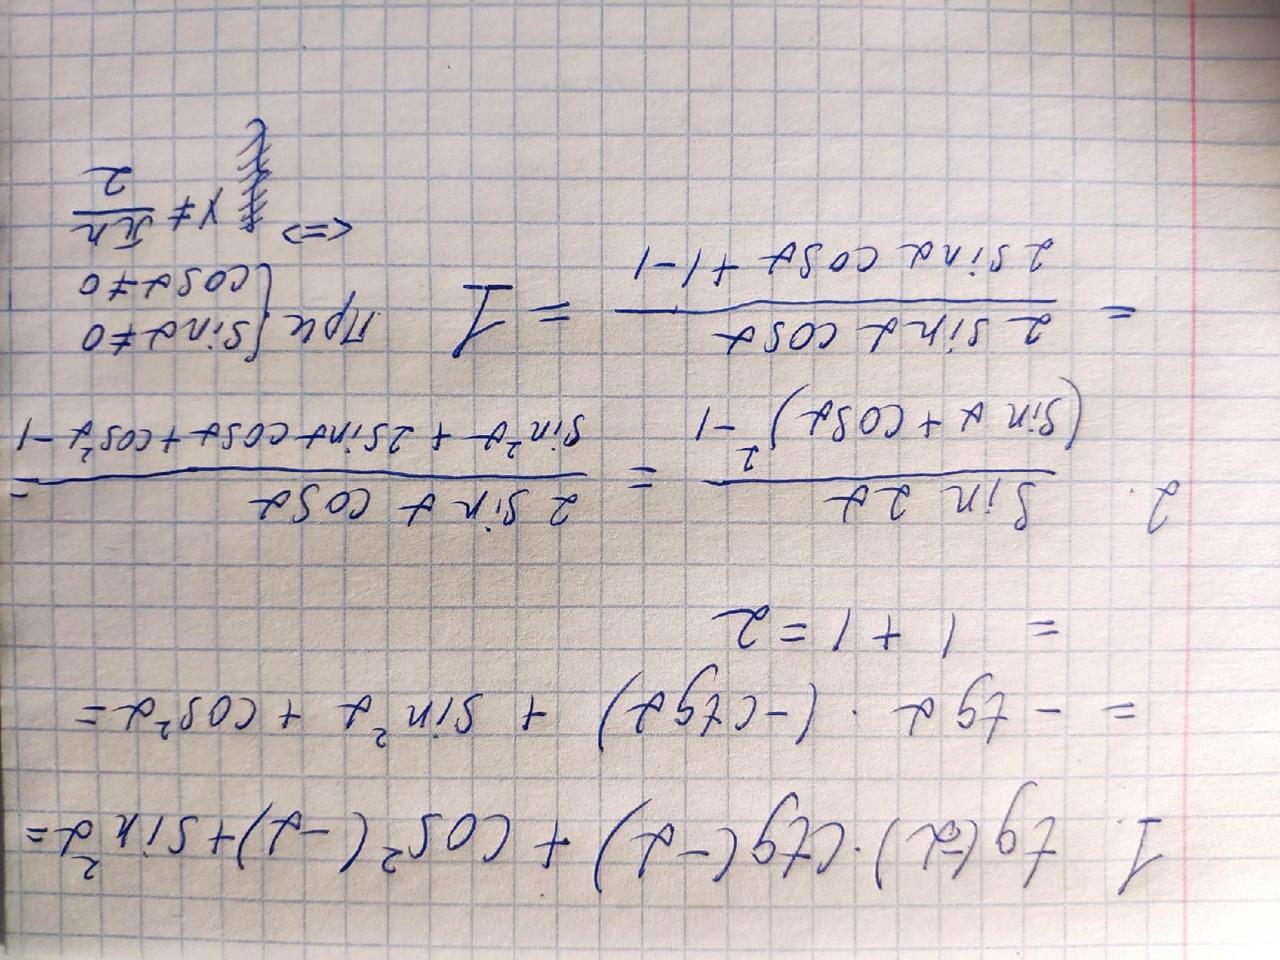 1. tg(-α)·ctg(-α) + cos²(-α) + sin²α =
= - tgα · (-ctgα) + sin²α + cos²α =
= 1 + 1 = 2
2. sin 2α / (sin α + cos α)² - 1 = 2 sin α cos α / sin²α + 2 sin α cos α + cos²α - 1 =
= 2 sin α cos α / 2 sin α cos α + 1 - 1 = 1 при { sin α ≠ 0 cos α ≠ 0
<=> γ ≠ πn / 2